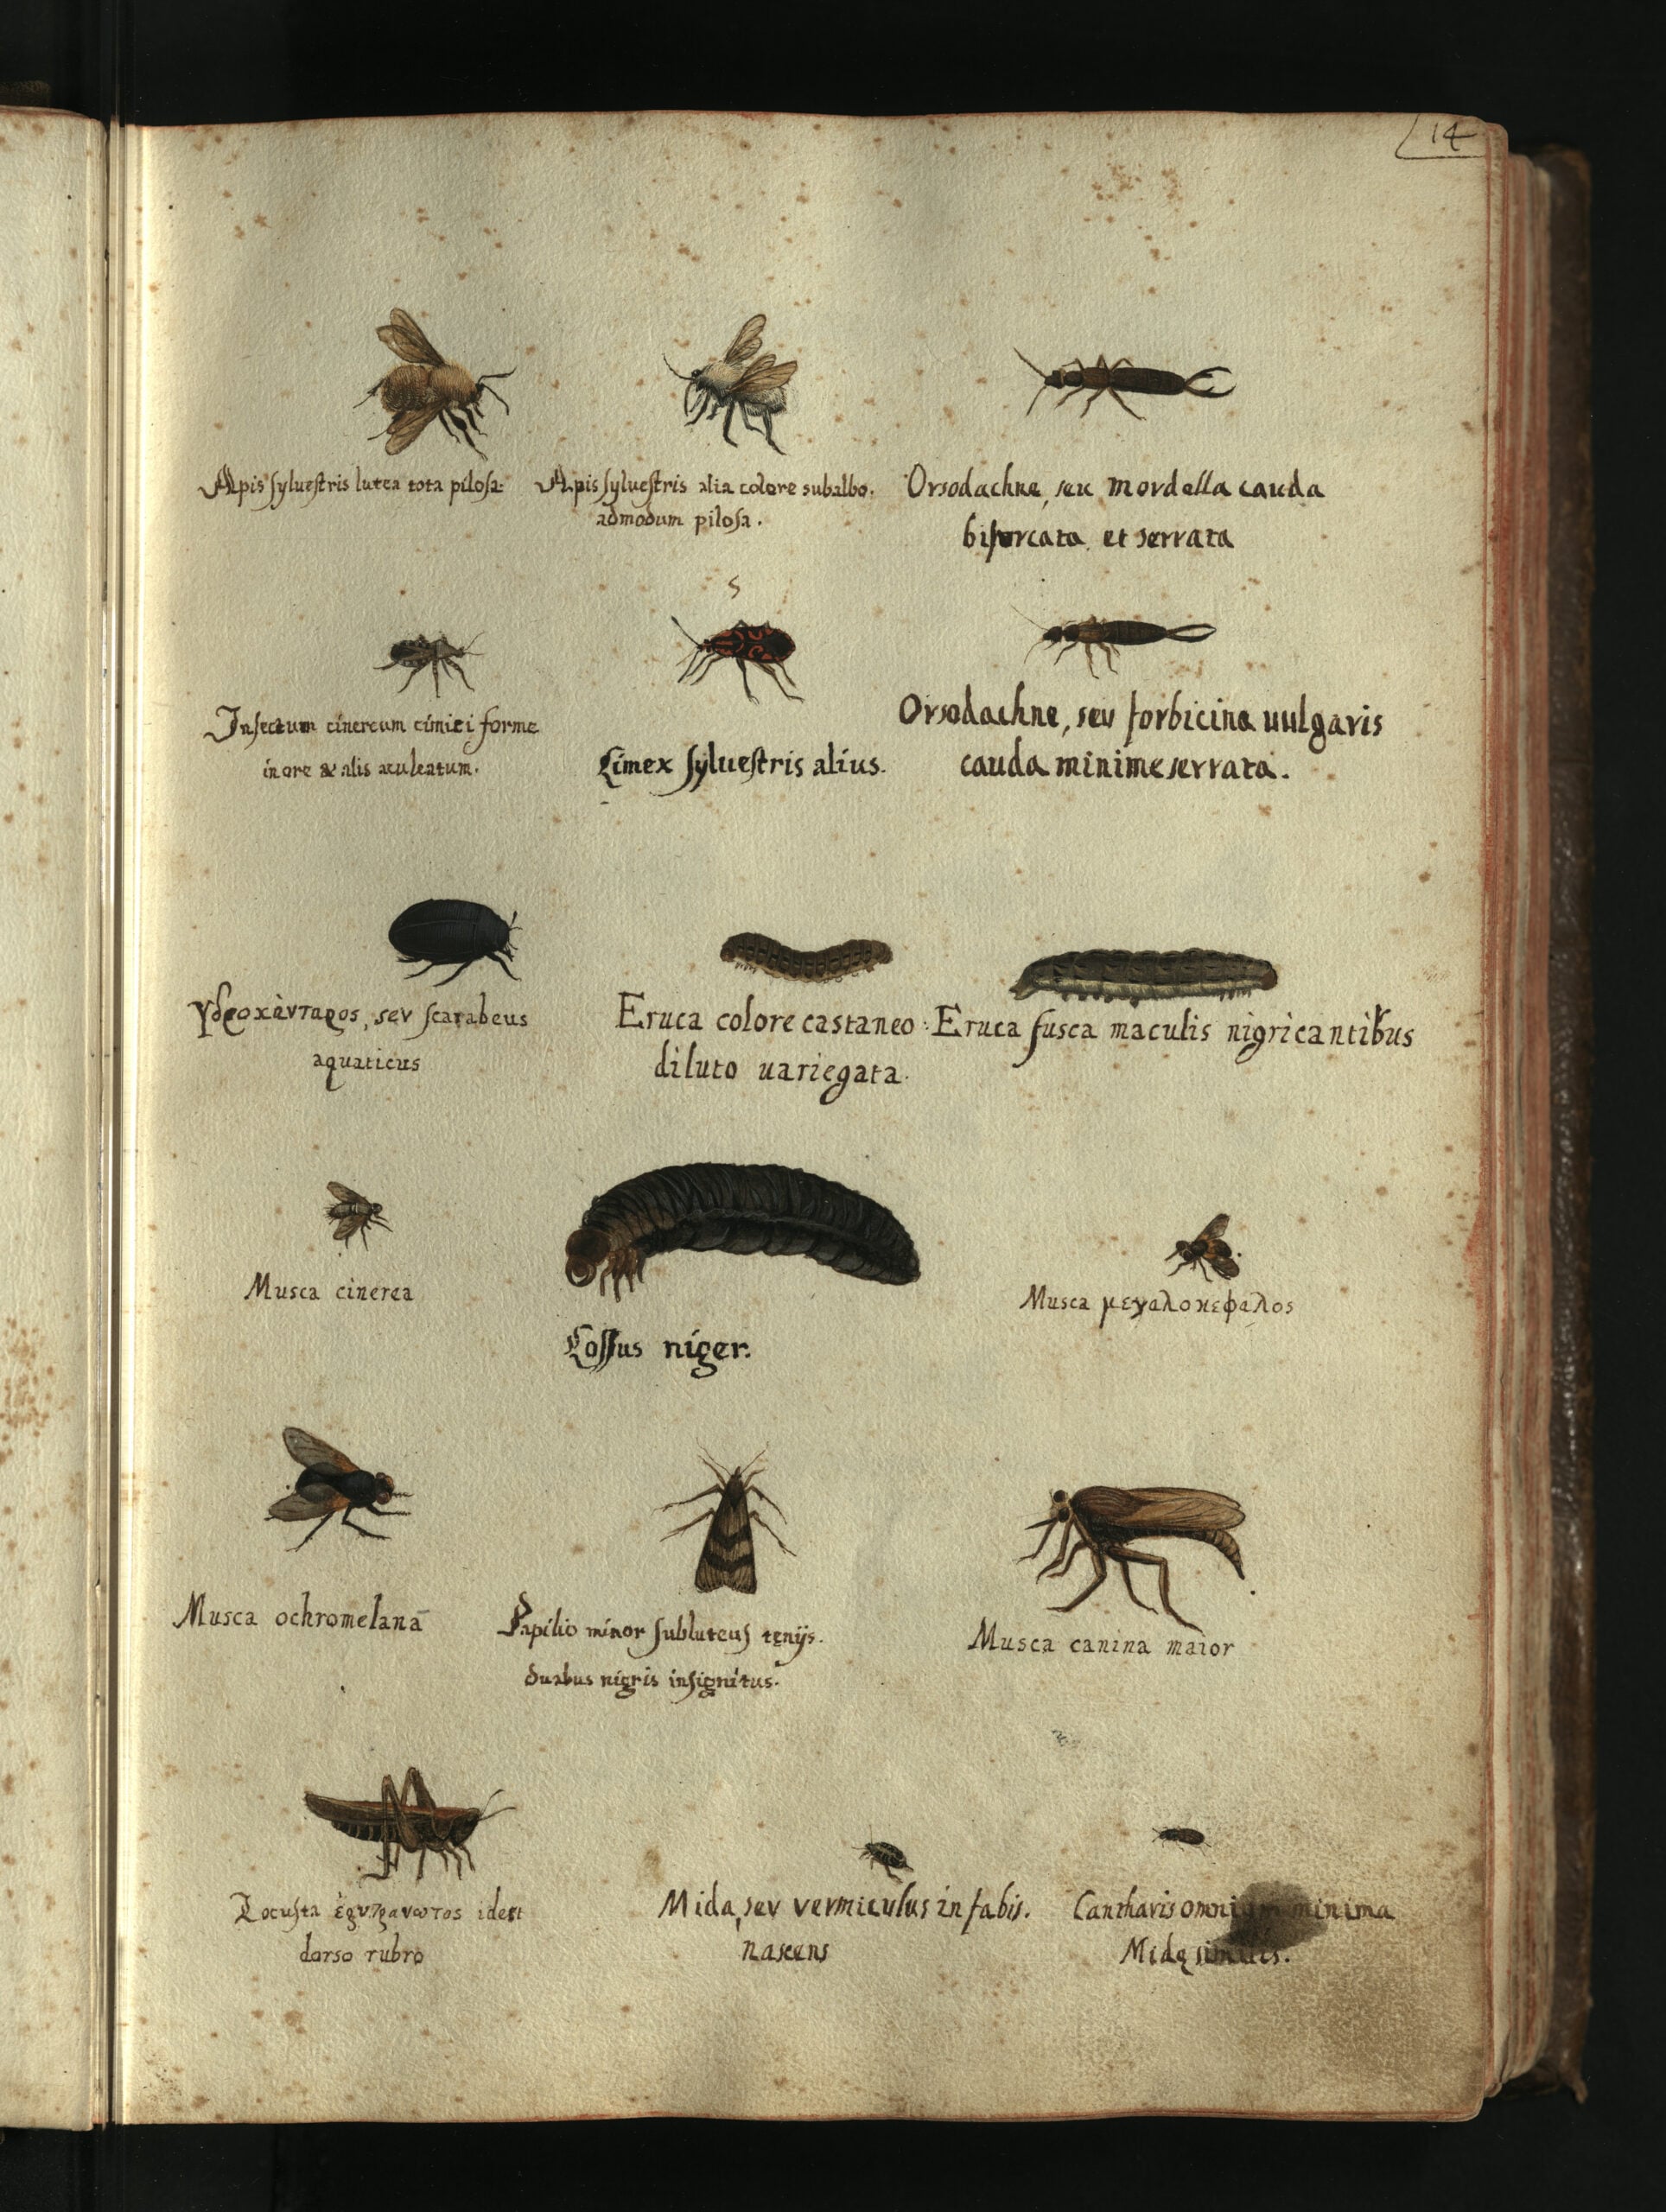 14
Apis sylvestris lutea tota pilosa.
Apis sylvestris alia colore subalbo.
admodum pilosa.
Orsodachne, seu mordella cauda
bifurcata et serrata
Insectum cinereum cimici forme
in ore & alis aculeatum.
5
Cimex sylvestris alius.
Orsodachne, seu forbicina uulgaris
cauda minime serrata.
Υδροκάνταρος, seu scarabeus
aquaticus
Eruca colore castaneo
diluto uariegata.
Eruca fusca maculis nigricantibus
Musca cinerea
Cossus niger.
Musca μεγαλοκεφαλος
Musca ochromelana
Papilio minor subluteus tęnijs.
duabus nigris insignitus.
Musca canina maior
Locusta idest
dorso rubro
Mida, seu vermiculus in fabis.
nascens
Cantharis omnium minima
Midę similis.